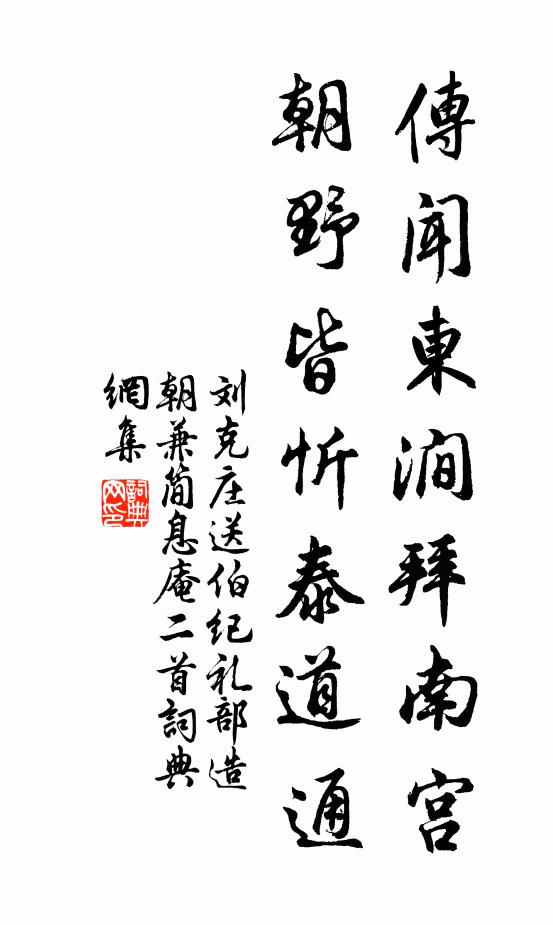 傳聞東澗拜南宫
朝野皆忻泰道通
刘克庄送伯纪礼部造
朝兼简息庵二首詞典
網集
詞典
网印